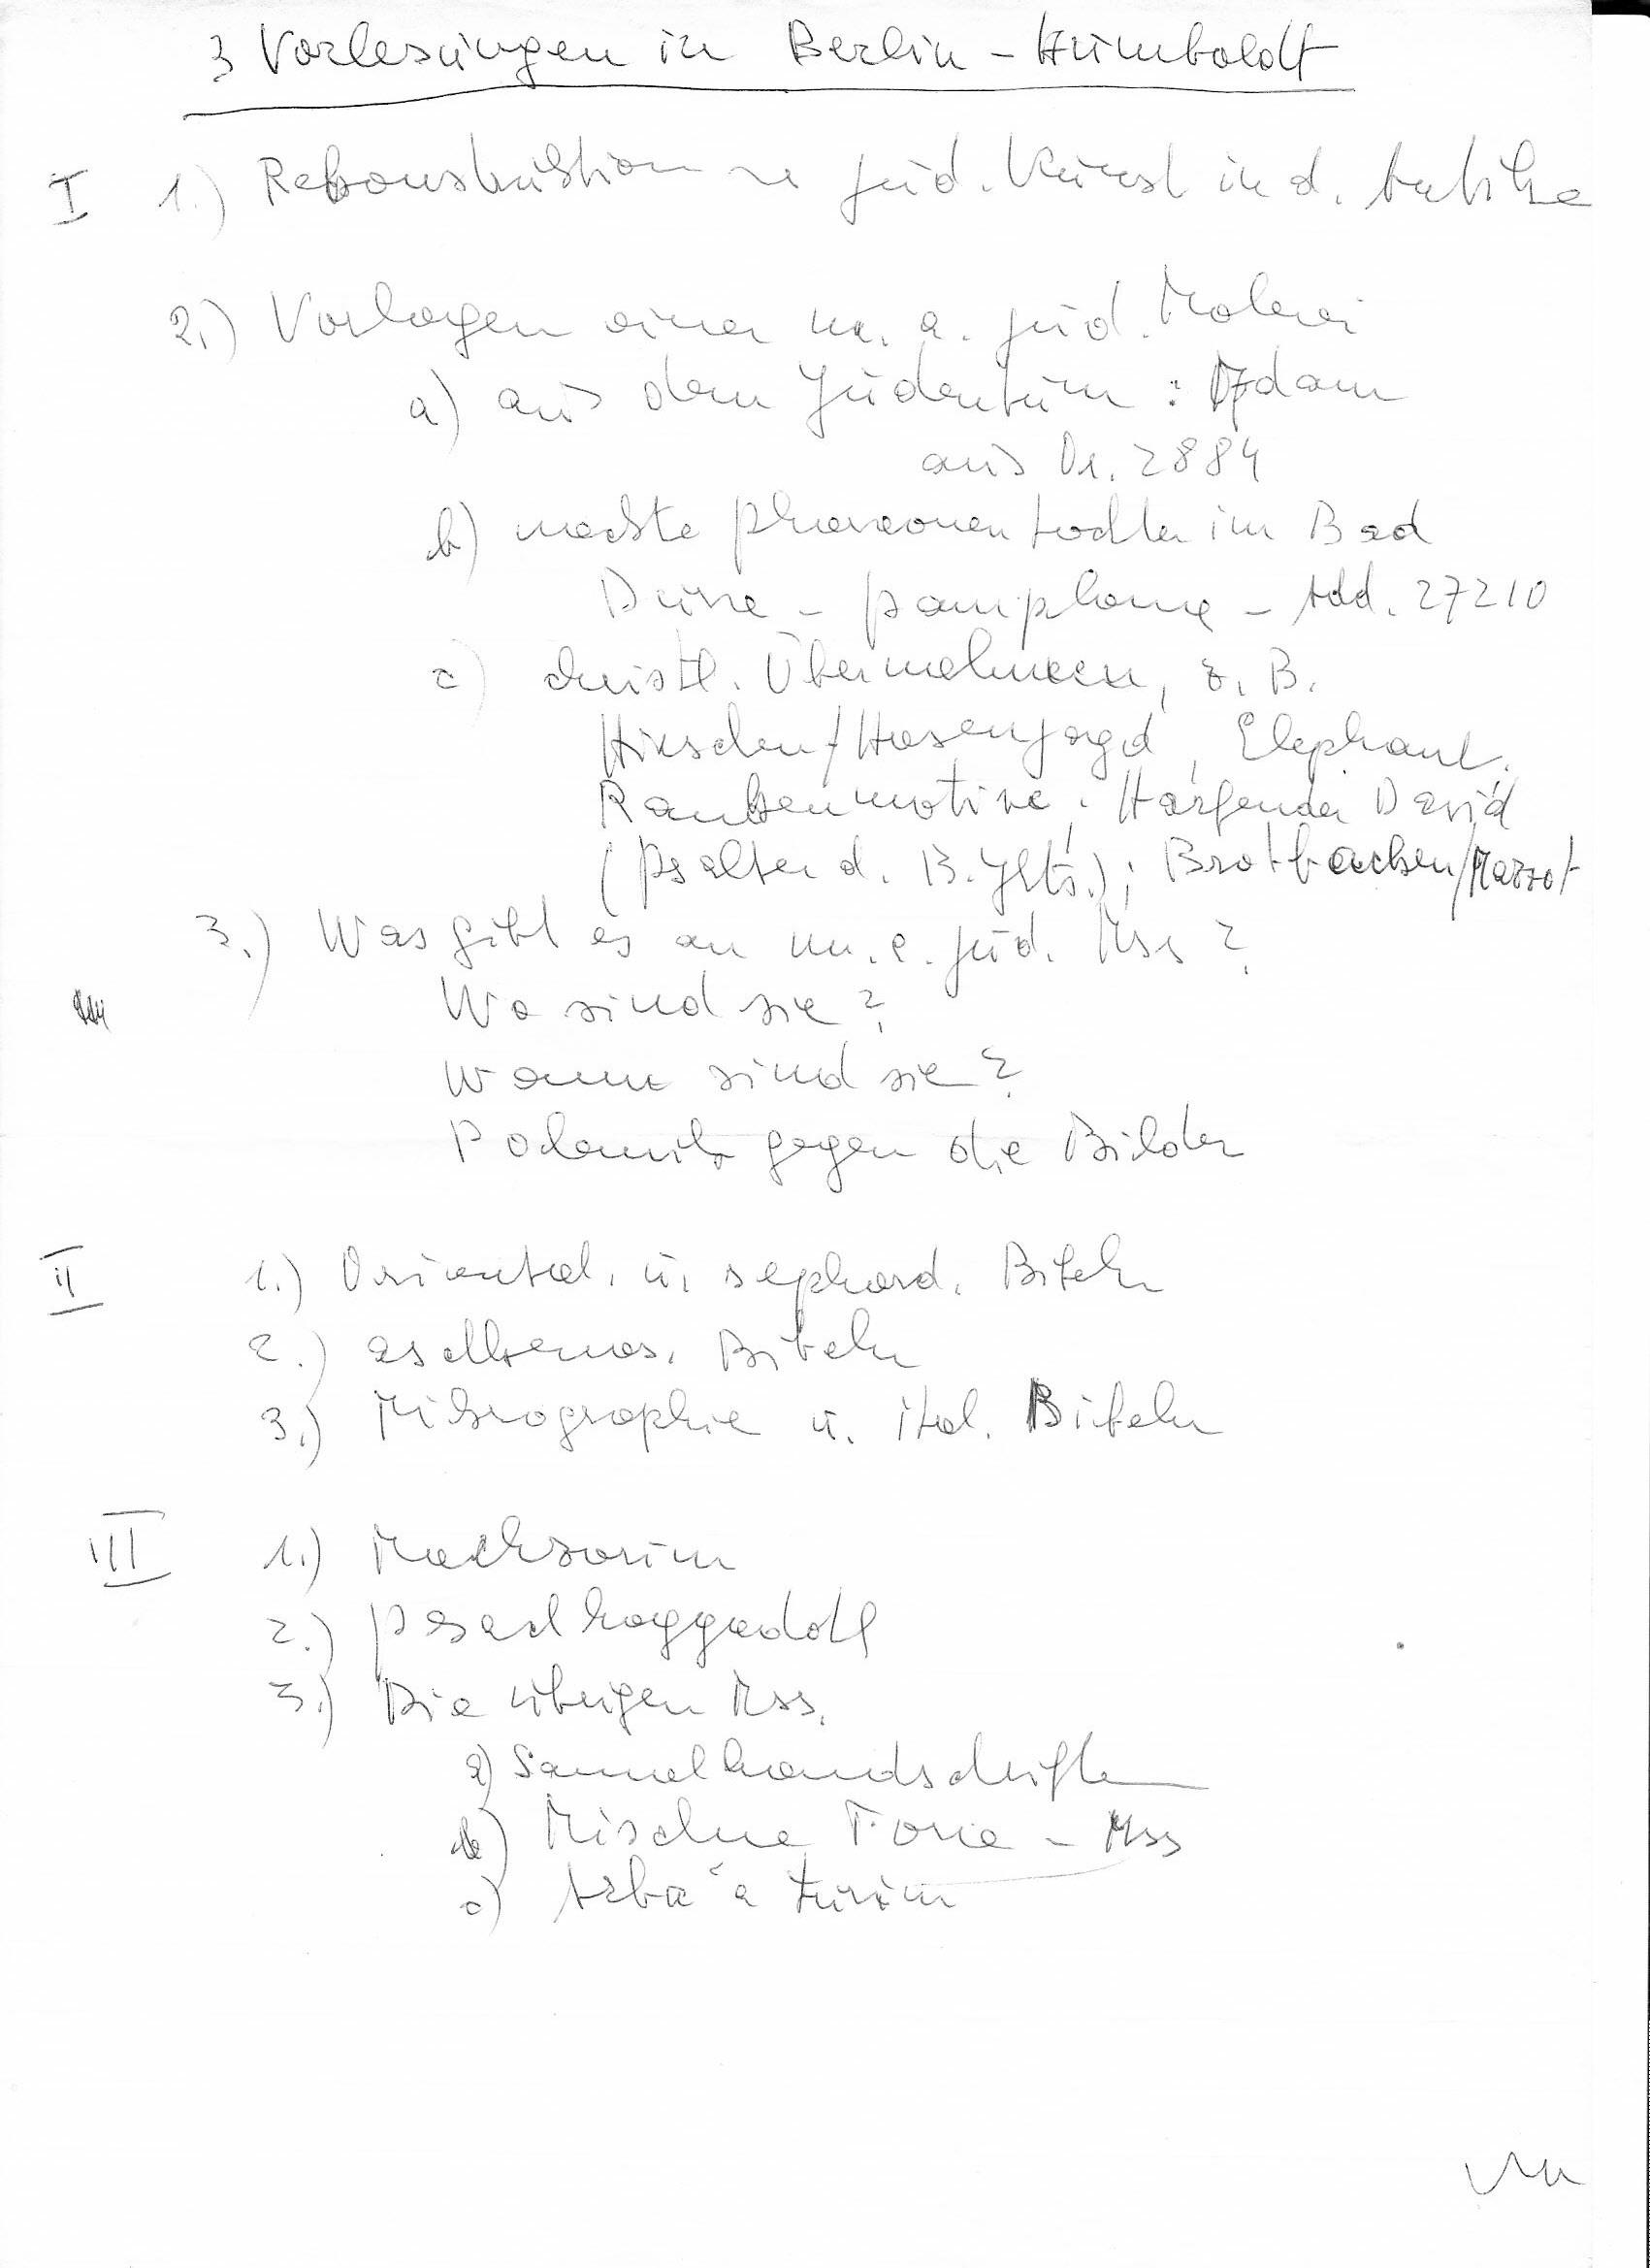 3 Vorlesungen in Berlin - Humboldt
I 1.) Rekonstruktion jüd. Kunst in d. Antike
2.) Vorlagen einer m. a. jüd. Malerei
a) aus dem Judentum : Adam
aus Or. 2884
b) nackte Pharaonentochter im Bad
Dura - Pamplona - Add. 27210
c) christl. Übernahmen, z. B.
Hirschen/Hasenjagd, Elephant,
Rankenmotive, Harfender David
(Psalter d. B. Ylts.); Brotbacken/Mazzot
3.) Was gibt es an m. a. jüd. Mss ?
Wo sind sie ?
Wann sind sie ?
Polemik gegen die Bilder
II 1.) Oriental. u. sephard. Bibeln
2.) aschkenas. Bibeln
3.) Mikrographie u. ital. Bibeln
III 1.) Machsorim
2.) Pesachhaggadott
3.) Die übrigen Mss.
a) Samelhandschriften
b) Mischne Tora - Mss
c) Arba'a Turim